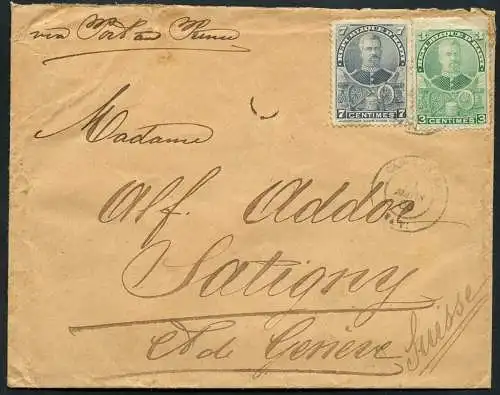 via Port au Prince
REPUBLIQUE D'HAITI
7 CENTIMES 7
REPUBLIQUE D'HAITI
3 CENTIMES 3
Madame
Alf. Addor
Satigny
Ct de Genève
Suisse
HAITI